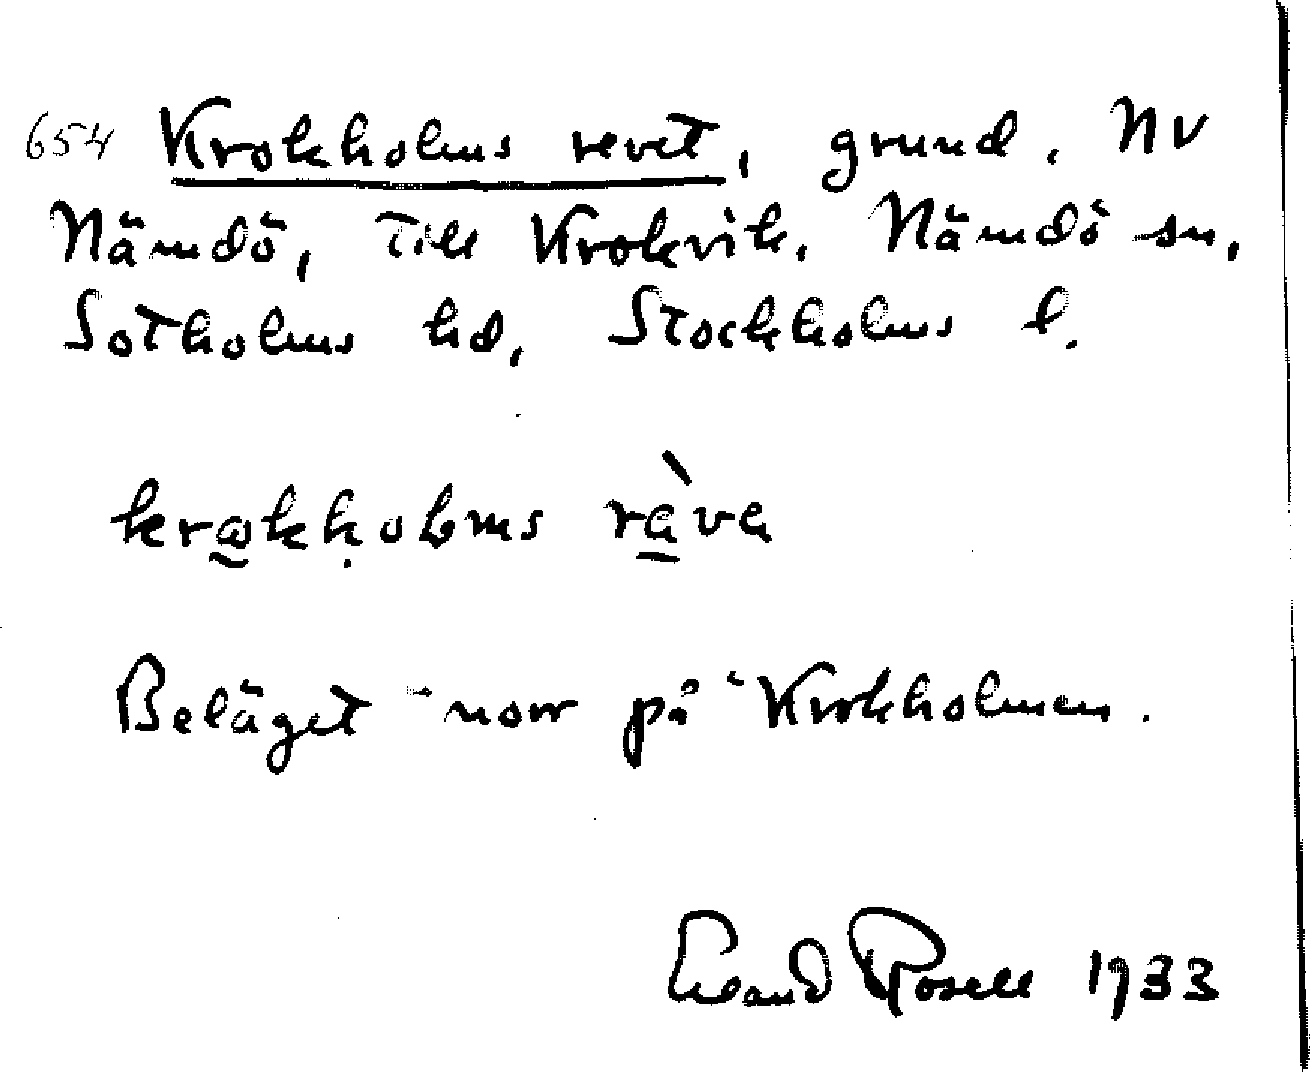 654 Krokholms revet, grund. NV
Nämdö, till Krokvik. Nämdö sn,
Sotholms hd, Stockholms l.
krωkḥolms rὰva
Beläget norr på Krokholmen.
Rosell 1933